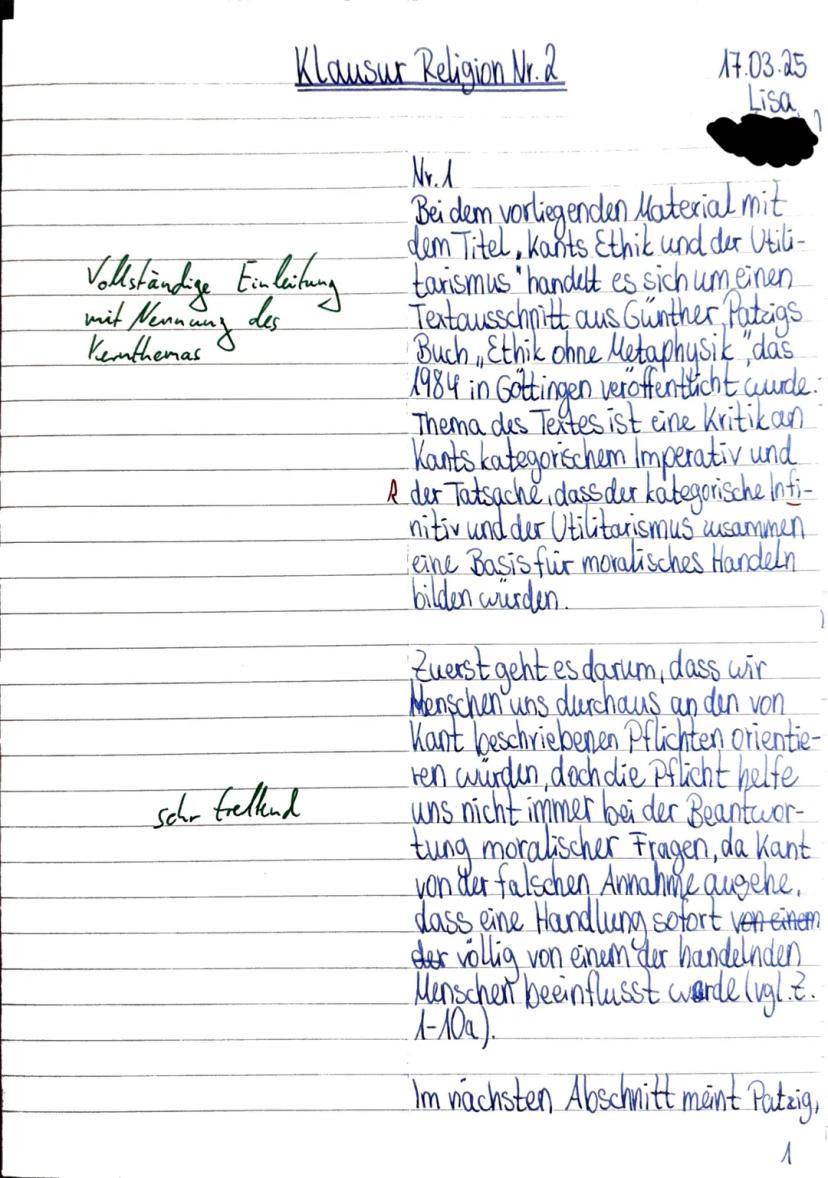 Klausur Religion Nr. 2
17.03.25
Lisa
Nr. 1
Bei dem vorliegenden Material mit
dem Titel „Kants Ethik und der Utili-
tarismus" handelt es sich um einen
Textausschnitt aus Günther Patzigs
Buch „Ethik ohne Metaphysik", das
1984 in Göttingen veröffentlicht wurde.
Thema des Textes ist eine Kritik an
Kants kategorischem Imperativ und
der Tatsache, dass der kategorische Infi-
nitiv und der Utilitarismus zusammen
eine Basis für moralisches Handeln
bilden würden.
Vollständige Einleitung
mit Nennung des
Kernthemas
R
Zuerst geht es darum, dass wir
Menschen uns durchaus an den von
Kant beschriebenen Pflichten orientie-
ren würden, doch die Pflicht helfe
uns nicht immer bei der Beantwor-
tung moralischer Fragen, da Kant
von der falschen Annahme ausgehe,
dass eine Handlung sofort von einem
der völlig von einem der handelnden
Menschen beeinflusst werde (vgl. Z.
1-10a).
sehr treffend
Im nächsten Abschnitt meint Patzig,
1